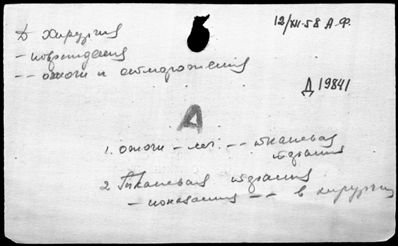 12/XII-58 А-Ф.
Д Хирургия
- повреждения
- - ожоги и отморожения
Д 19841
А
1. ожоги - леч. - - тканевая
терапия
2. Тканевая терапия
- показания - - в хирургии